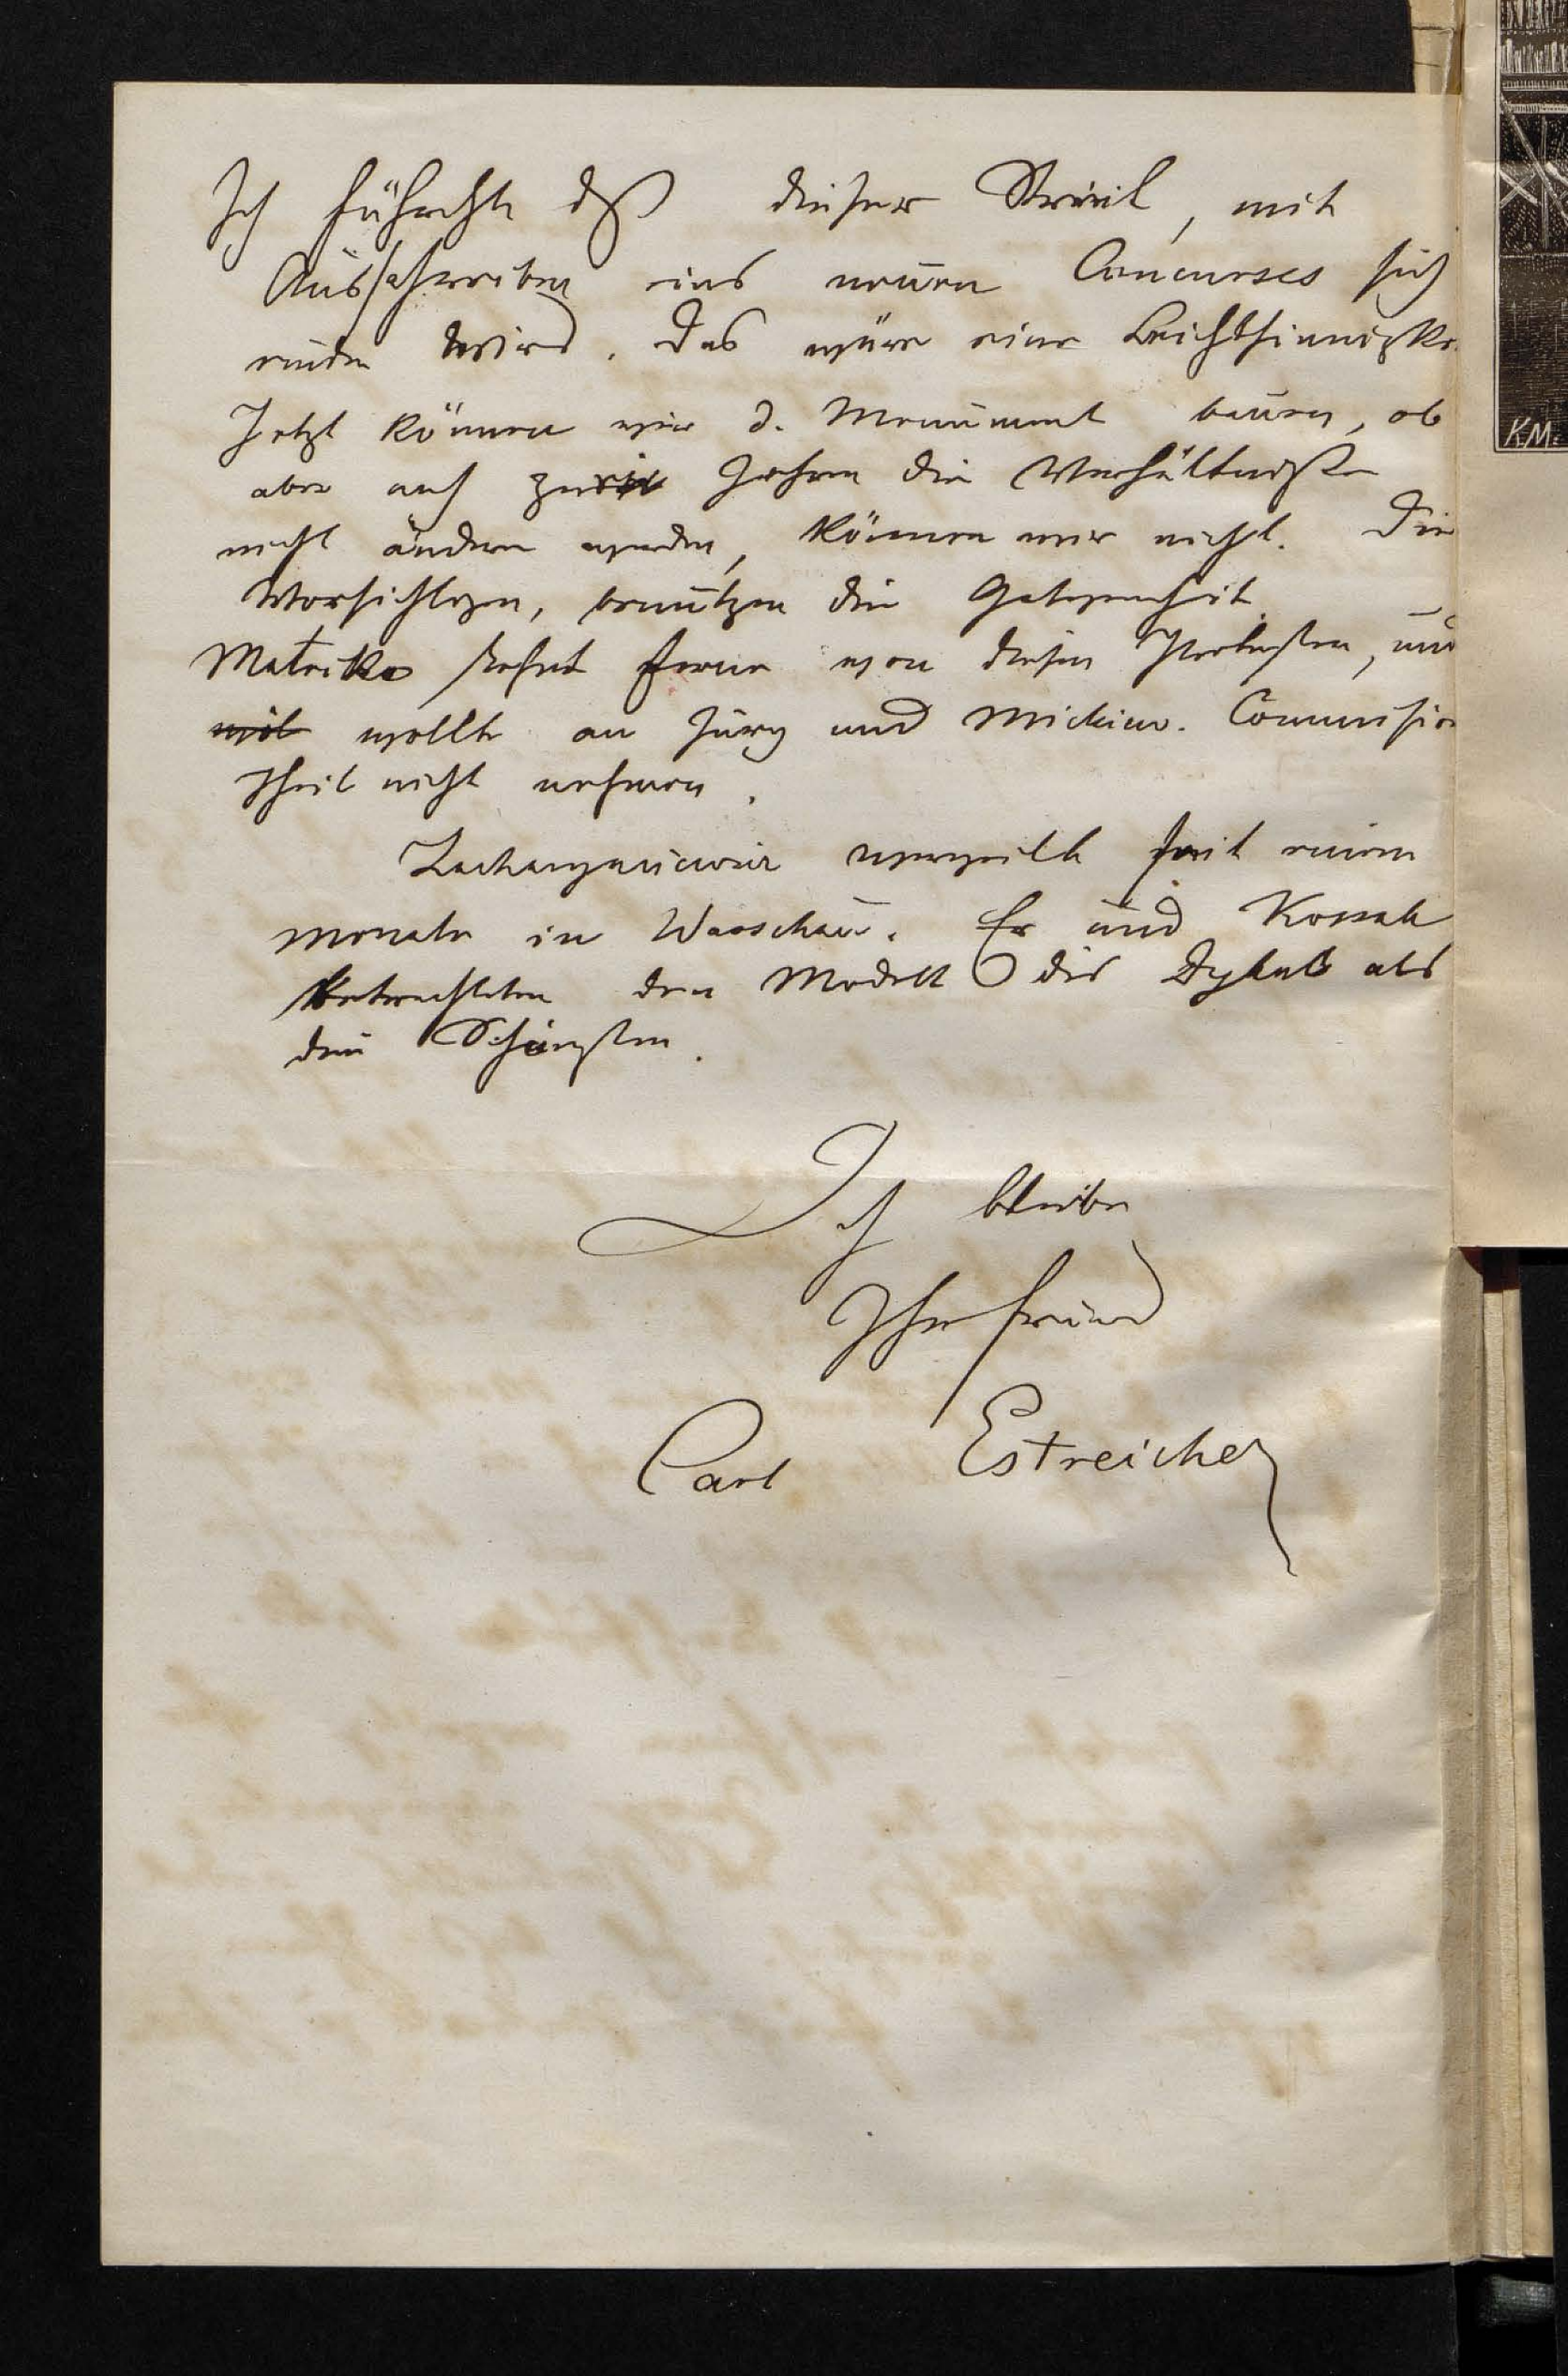 Ich führchte dß dieser Streit, mit
Ausschreiben eines neuen Concurses sich
enden wird. Das wäre eine Leichtsinnigke
Jetzt können wir d. Monument bauen, ob
aber nach zwei Jahren die Verhältnisse
nicht ändern werden, können wir nicht. Die
Vorsichtigen, benützen die Gelegenheit.
Matejko stehet ferne von diesen Protesten, und
wollte an Jury und Mickiew. Commission
Theil nicht nehmen.
verweilt seit einem
Monate in Warschau. Er und Kossak
betrachteten den Modell des Dykas als
den Schönsten.
Ich bleibe
Ihr Freund
Carl Estreicher
KM.